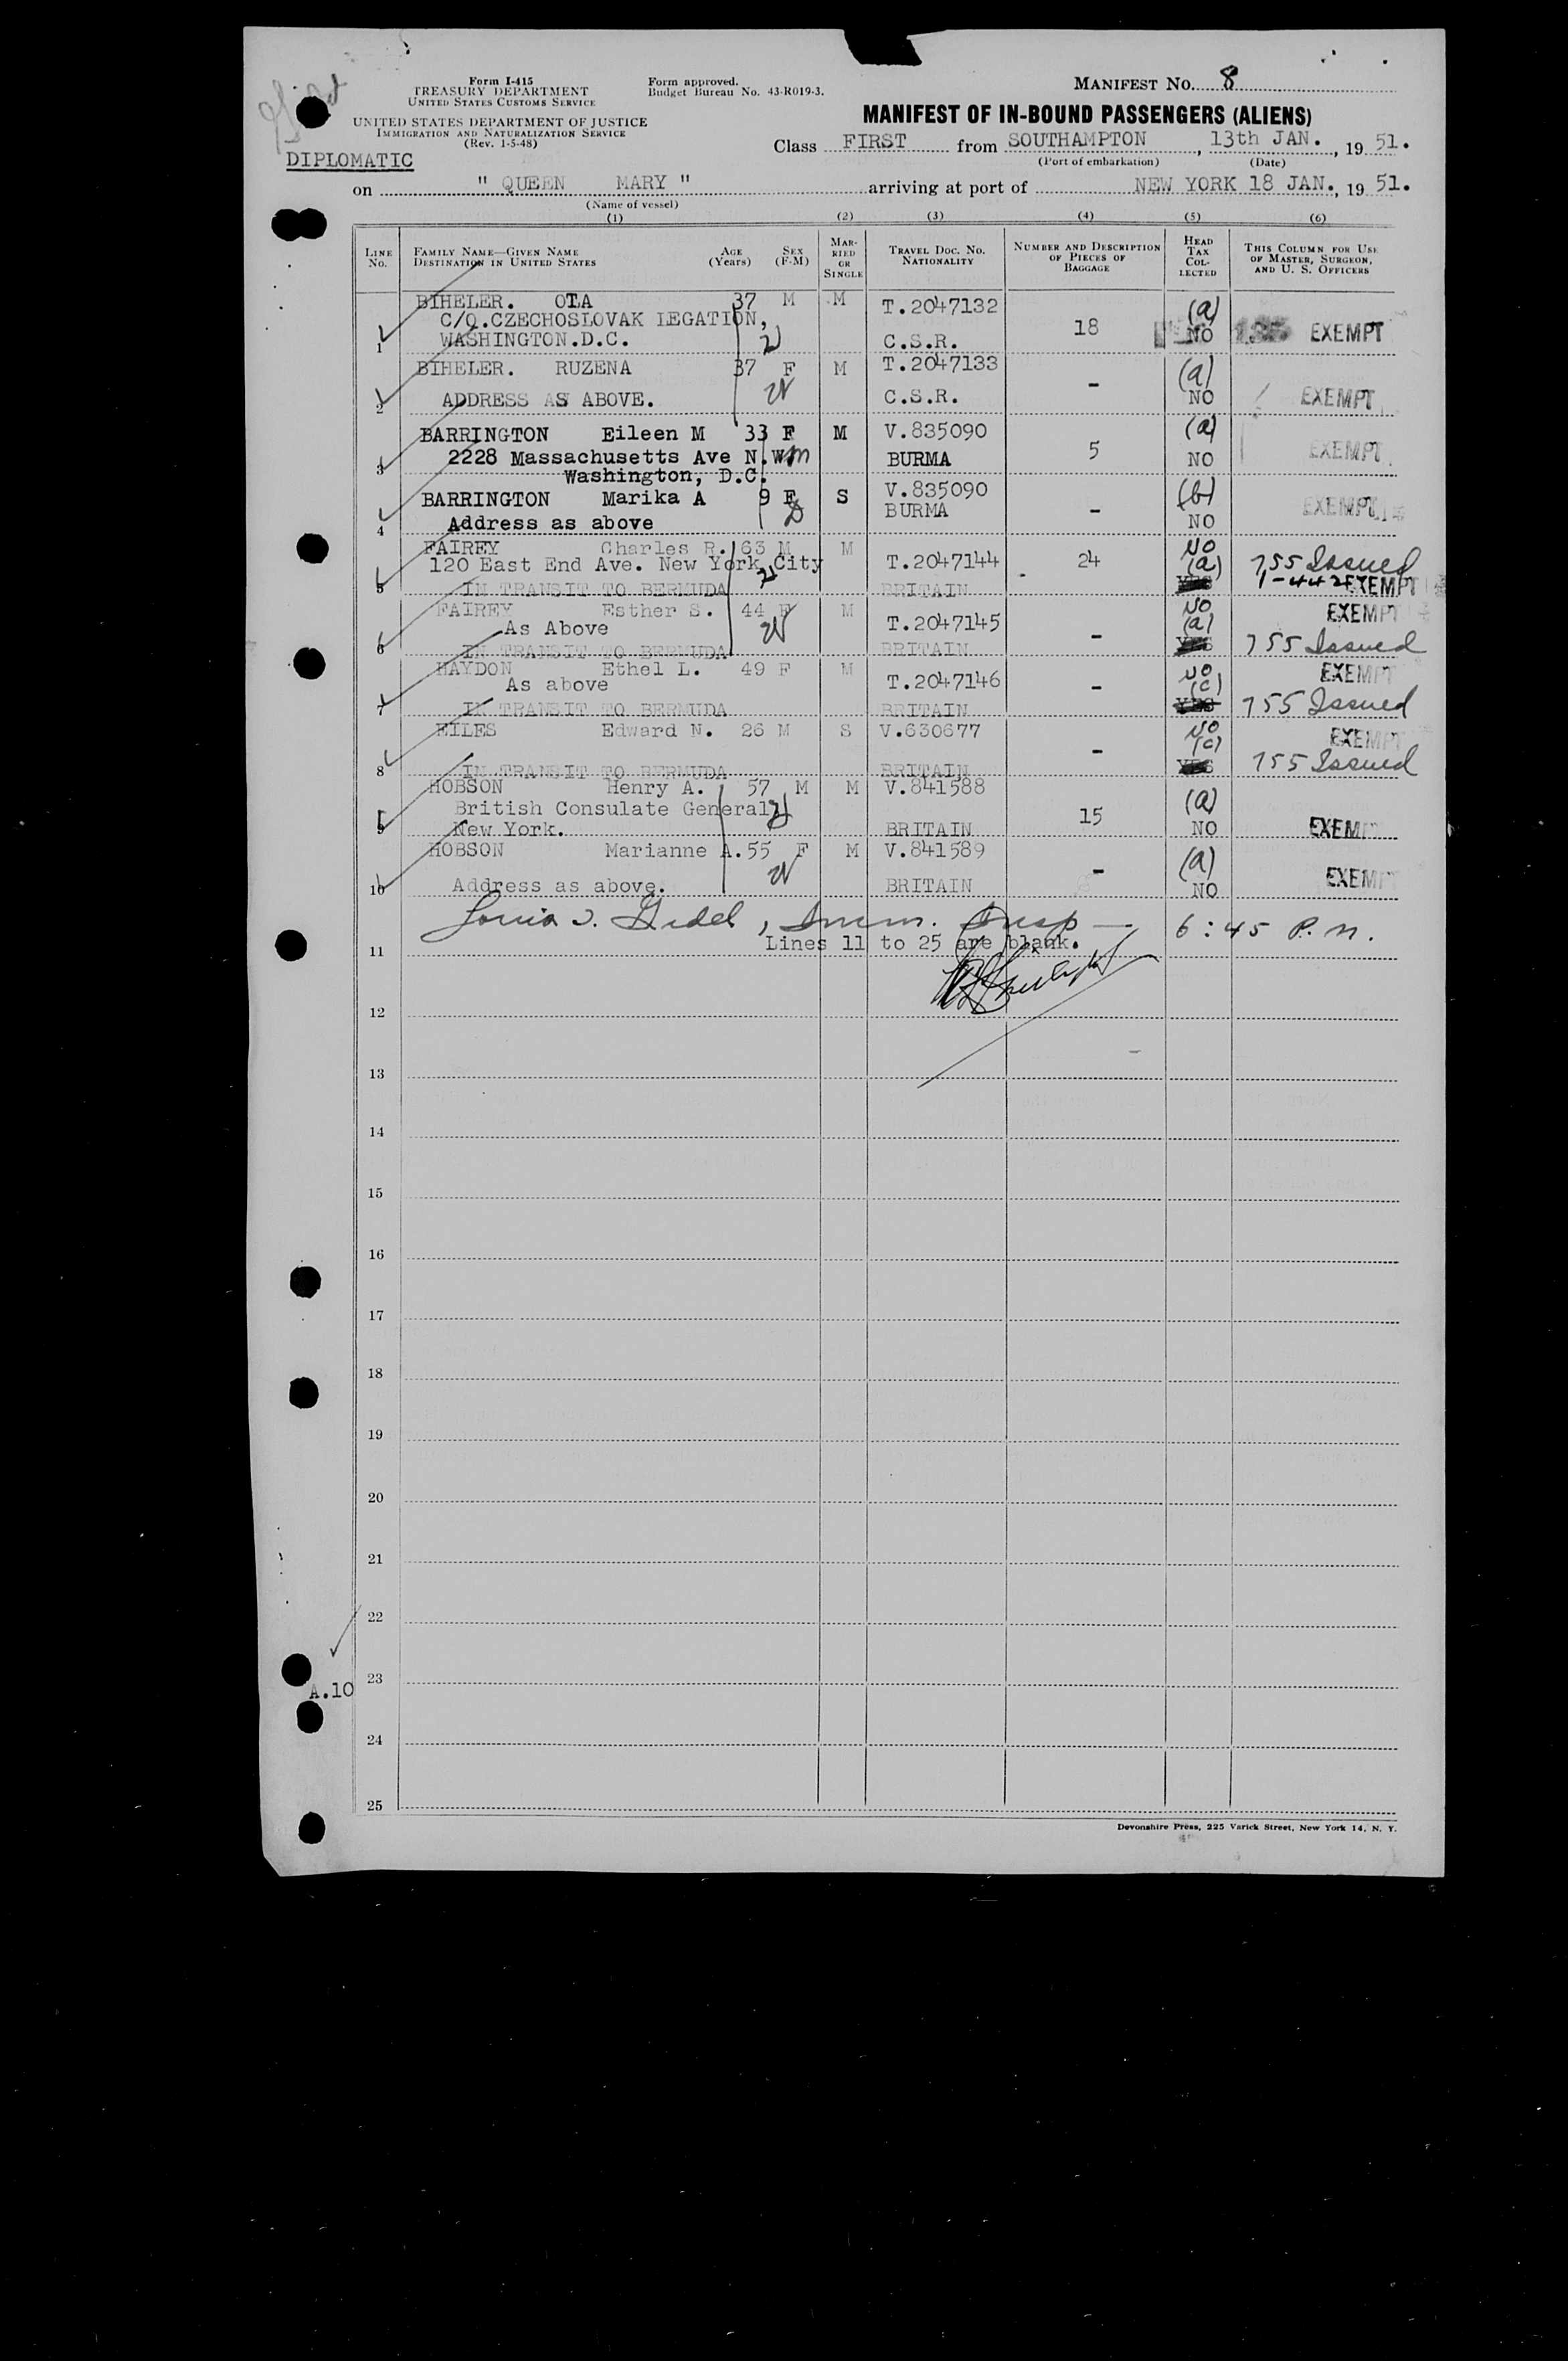 Form I-415
TREASURY DEPARTMENT
UNITED STATES CUSTOMS SERVICE
UNITED STATES DEPARTMENT OF JUSTICE
IMMIGRATION AND NATURALIZATION SERVICE
(Rev. 1-5-48)
Form approved.
Budget Bureau No. 43-R019-3.
MANIFEST No. 8
MANIFEST OF IN-BOUND PASSENGERS (ALIENS)
DIPLOMATIC
Class FIRST from SOUTHAMPTON, 13th JAN., 19 51.
(Port of embarkation) (Date)
on " QUEEN MARY " arriving at port of NEW YORK 18 JAN., 19 51.
(Name of vessel)
(1) (2) (3) (4) (5) (6)
LINE No. FAMILY NAME—GIVEN NAME DESTINATION IN UNITED STATES AGE (Years) SEX (F-M) MARRIED OR SINGLE TRAVEL DOC. NO. NATIONALITY NUMBER AND DESCRIPTION OF PIECES OF BAGGAGE HEAD TAX COLLECTED THIS COLUMN FOR USE OF MASTER, SURGEON, AND U. S. OFFICERS
BIHELER. OTA 37 M M T.2047132 (a)
C/O.CZECHOSLOVAK LEGATION, 18
1 WASHINGTON.D.C. C.S.R. NO EXEMPT
BIHELER. RUZENA 37 F M T.2047133 - (a)
2 ADDRESS AS ABOVE. C.S.R. NO EXEMPT
BARRINGTON Eileen M 33 F M V.835090 5 (a)
2228 Massachusetts Ave N.W. BURMA NO EXEMPT
3 Washington, D.C.
BARRINGTON Marika A 9 F S V.835090 - (b)
BURMA EXEMPT
4 Address as above NO
FAIREY Charles R. 63 M M NO
120 East End Ave. New York City T.2047144 24 (a) 755 Issued
5 IN TRANSIT TO BERMUDA BRITAIN YES 1-442 EXEMPT
FAIREY Esther S. 44 F M NO EXEMPT
As Above T.2047145 - (a)
6 IN TRANSIT TO BERMUDA BRITAIN YES 755 Issued
HAYDON Ethel L. 49 F M NO EXEMPT
As above T.2047146 - (c)
7 IN TRANSIT TO BERMUDA BRITAIN YES 755 Issued
EILES Edward N. 26 M S V.630677 NO EXEMPT
- (c)
8 IN TRANSIT TO BERMUDA BRITAIN YES 755 Issued
HOBSON Henry A. 57 M M V.841588 (a)
British Consulate General 15
9 New York. BRITAIN NO EXEM
HOBSON Marianne A. 55 F M V.841589 - (a)
10 Address as above. BRITAIN NO EXEM
Imm. Insp — 6:45 P.M.
Lines 11 to 25 are blank.
11
12
13
14
15
16
17
18
19
20
21
22
23
A.10
24
25
Devonshire Press, 225 Varick Street, New York 14, N. Y.